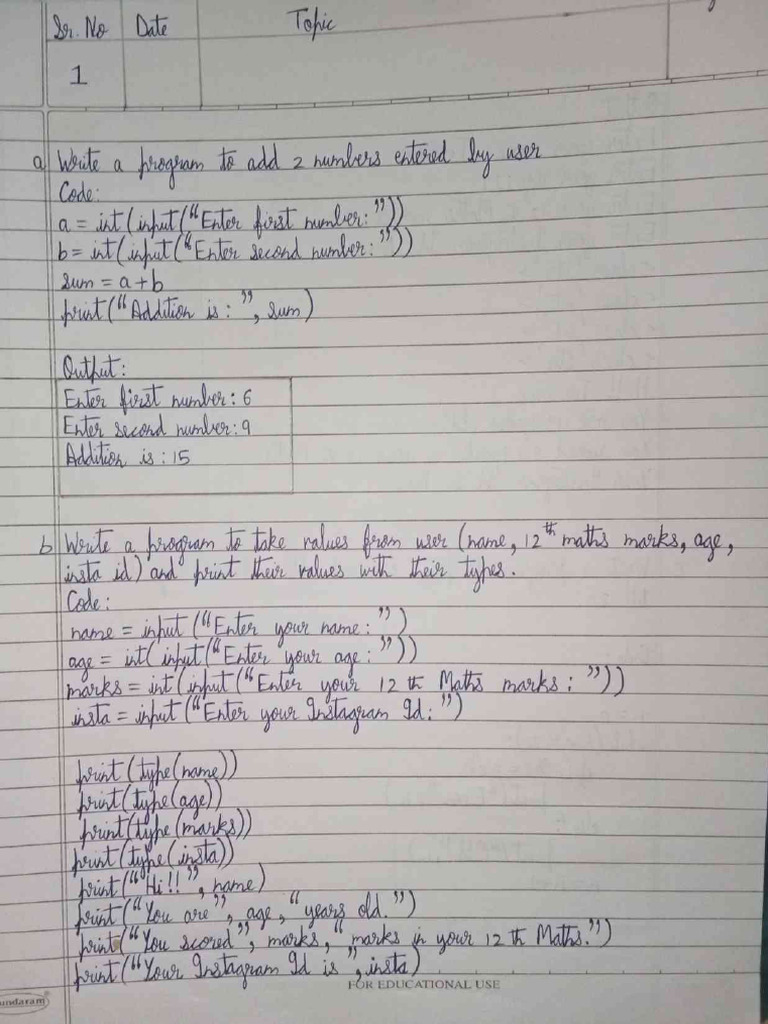 Sr. No Date Topic
1
a Write a program to add 2 numbers entered by user
Code:
a = int(input("Enter first number: "))
b = int(input("Enter second number: "))
sum = a+b
print("Addition is: ", sum)
Output:
Enter first number: 6
Enter second number: 9
Addition is: 15
b Write a program to take values from user (name, 12th maths marks, age,
insta id) and print their values with their types.
Code:
name = input("Enter your name: ")
age = int(input("Enter your age: "))
marks = int(input("Enter your 12 th Maths marks: "))
insta = input("Enter your Instagram Id: ")
print(type(name))
print(type(age))
print(type(marks))
print(type(insta))
print("Hi!!", name)
print("You are", age, "years old.")
print("You scored", marks, "marks in your 12 th Maths.")
print("Your Instagram Id is ", insta)
FOR EDUCATIONAL USE
undaram